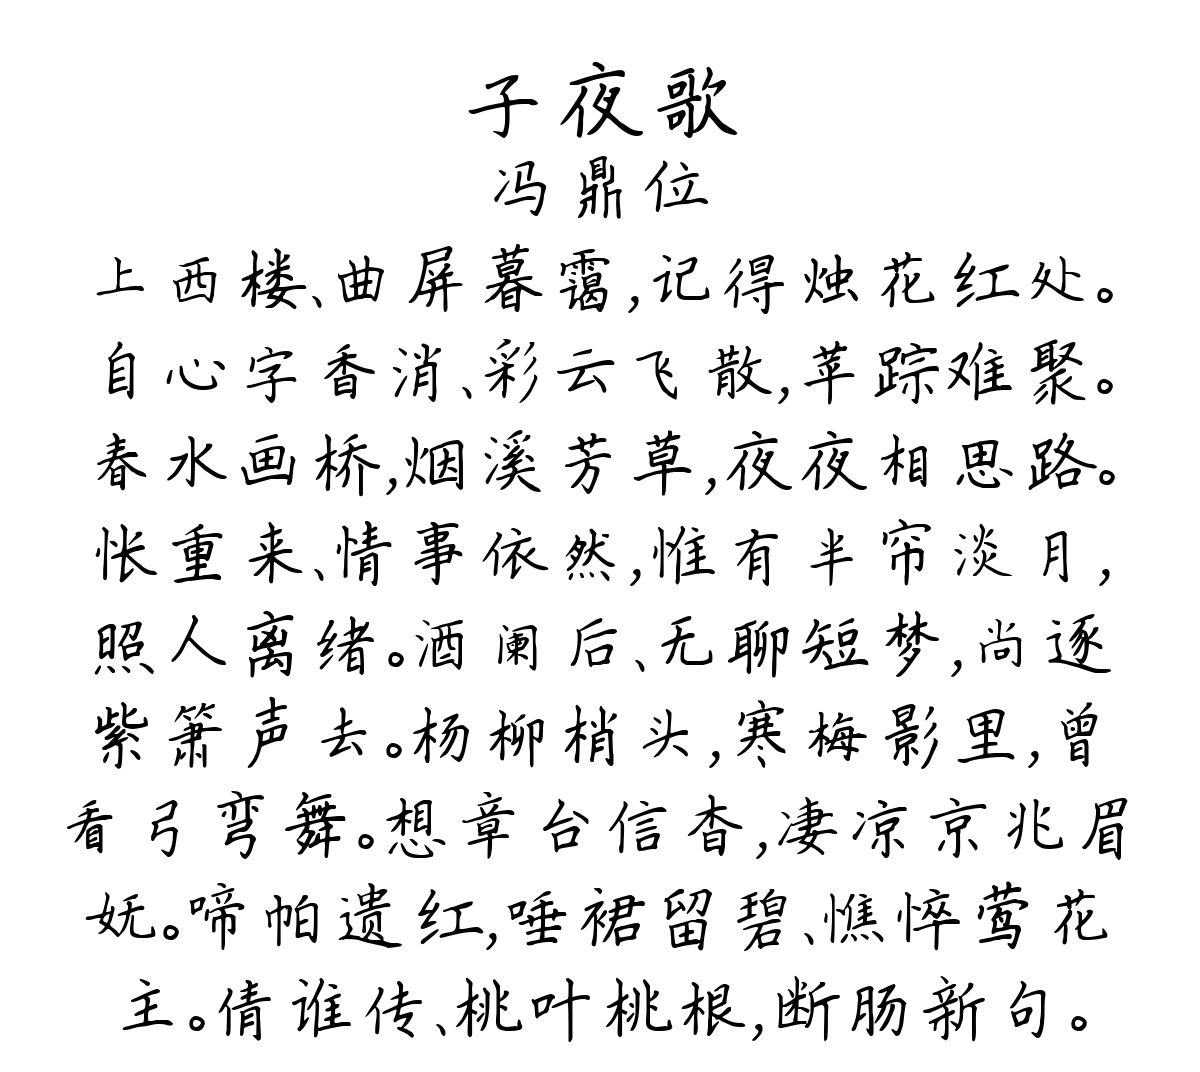 子夜歌
冯鼎位
上西楼、曲屏暮霭,记得烛花红处。
自心字香消、彩云飞散,苹踪难聚。
春水画桥,烟溪芳草,夜夜相思路。
怅重来、情事依然,惟有半帘淡月,
照人离绪。酒阑后、无聊短梦,尚逐
紫箫声去。杨柳梢头,寒梅影里,曾
看弓弯舞。想章台信杳,凄凉京兆眉
妩。啼帕遗红,唾裙留碧、憔悴莺花
主。倩谁传、桃叶桃根,断肠新句。